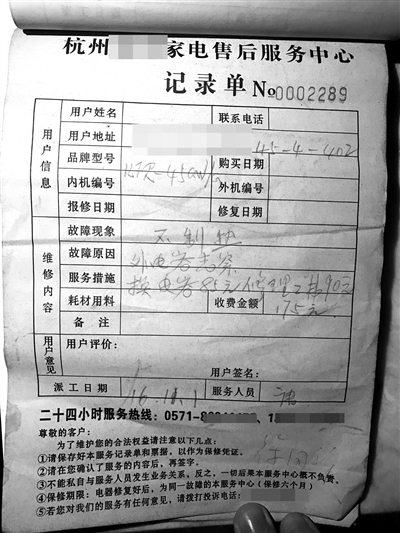 杭州 家电售后服务中心
记录单 No 0002289
用户信息
用户姓名 联系电话
用户地址 45-4-402
品牌型号 购买日期
内机编号 外机编号
报修日期 修复日期
维修内容
故障现象 不制热
故障原因 外电容击穿
服务措施 换电容85元修理工费90元
耗材用料 收费金额 175元
备注
用户意见
用户评价:
用户签名:
派工日期 16.11.1 服务人员
二十四小时服务热线: 0571-88
尊敬的客户:
为了维护您的合法权益请注意以下几点:
①请保存好本服务记录单和票据,以作为保修凭证。
②请在您确认了服务的内容后,再签字。
③不能私自与服务人员发生业务关系。反之,一切后果本服务中心概不负责。
④保修期限:电器修复好后,为同一故障的本服务中心保修(保修六个月)
⑤若您对我们的服务有任何意见,请拨打投诉电话: